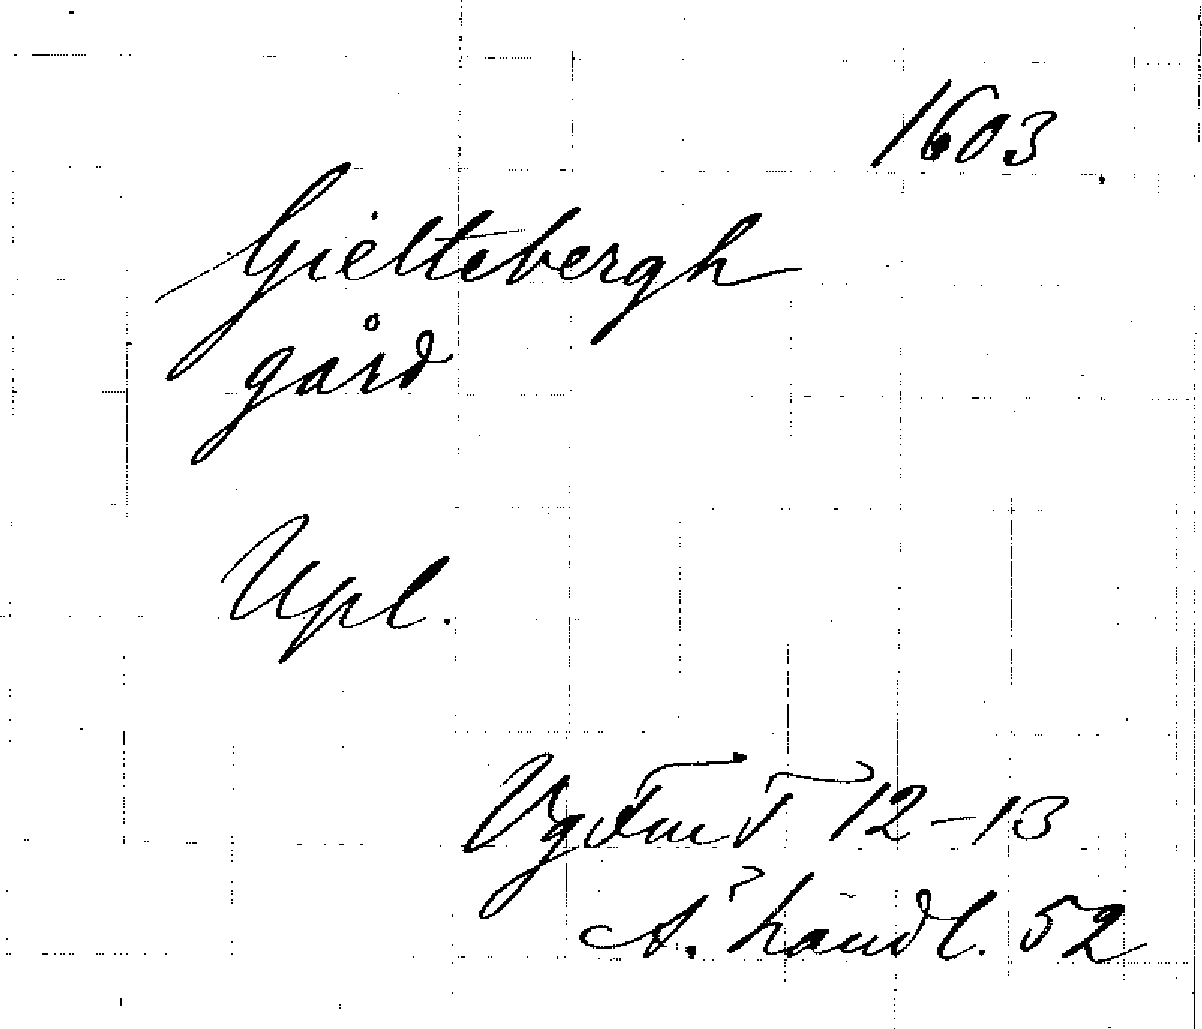 1603
Gieltebergh
gård
Upl.
VgFmT 12-13
A. handl. 52